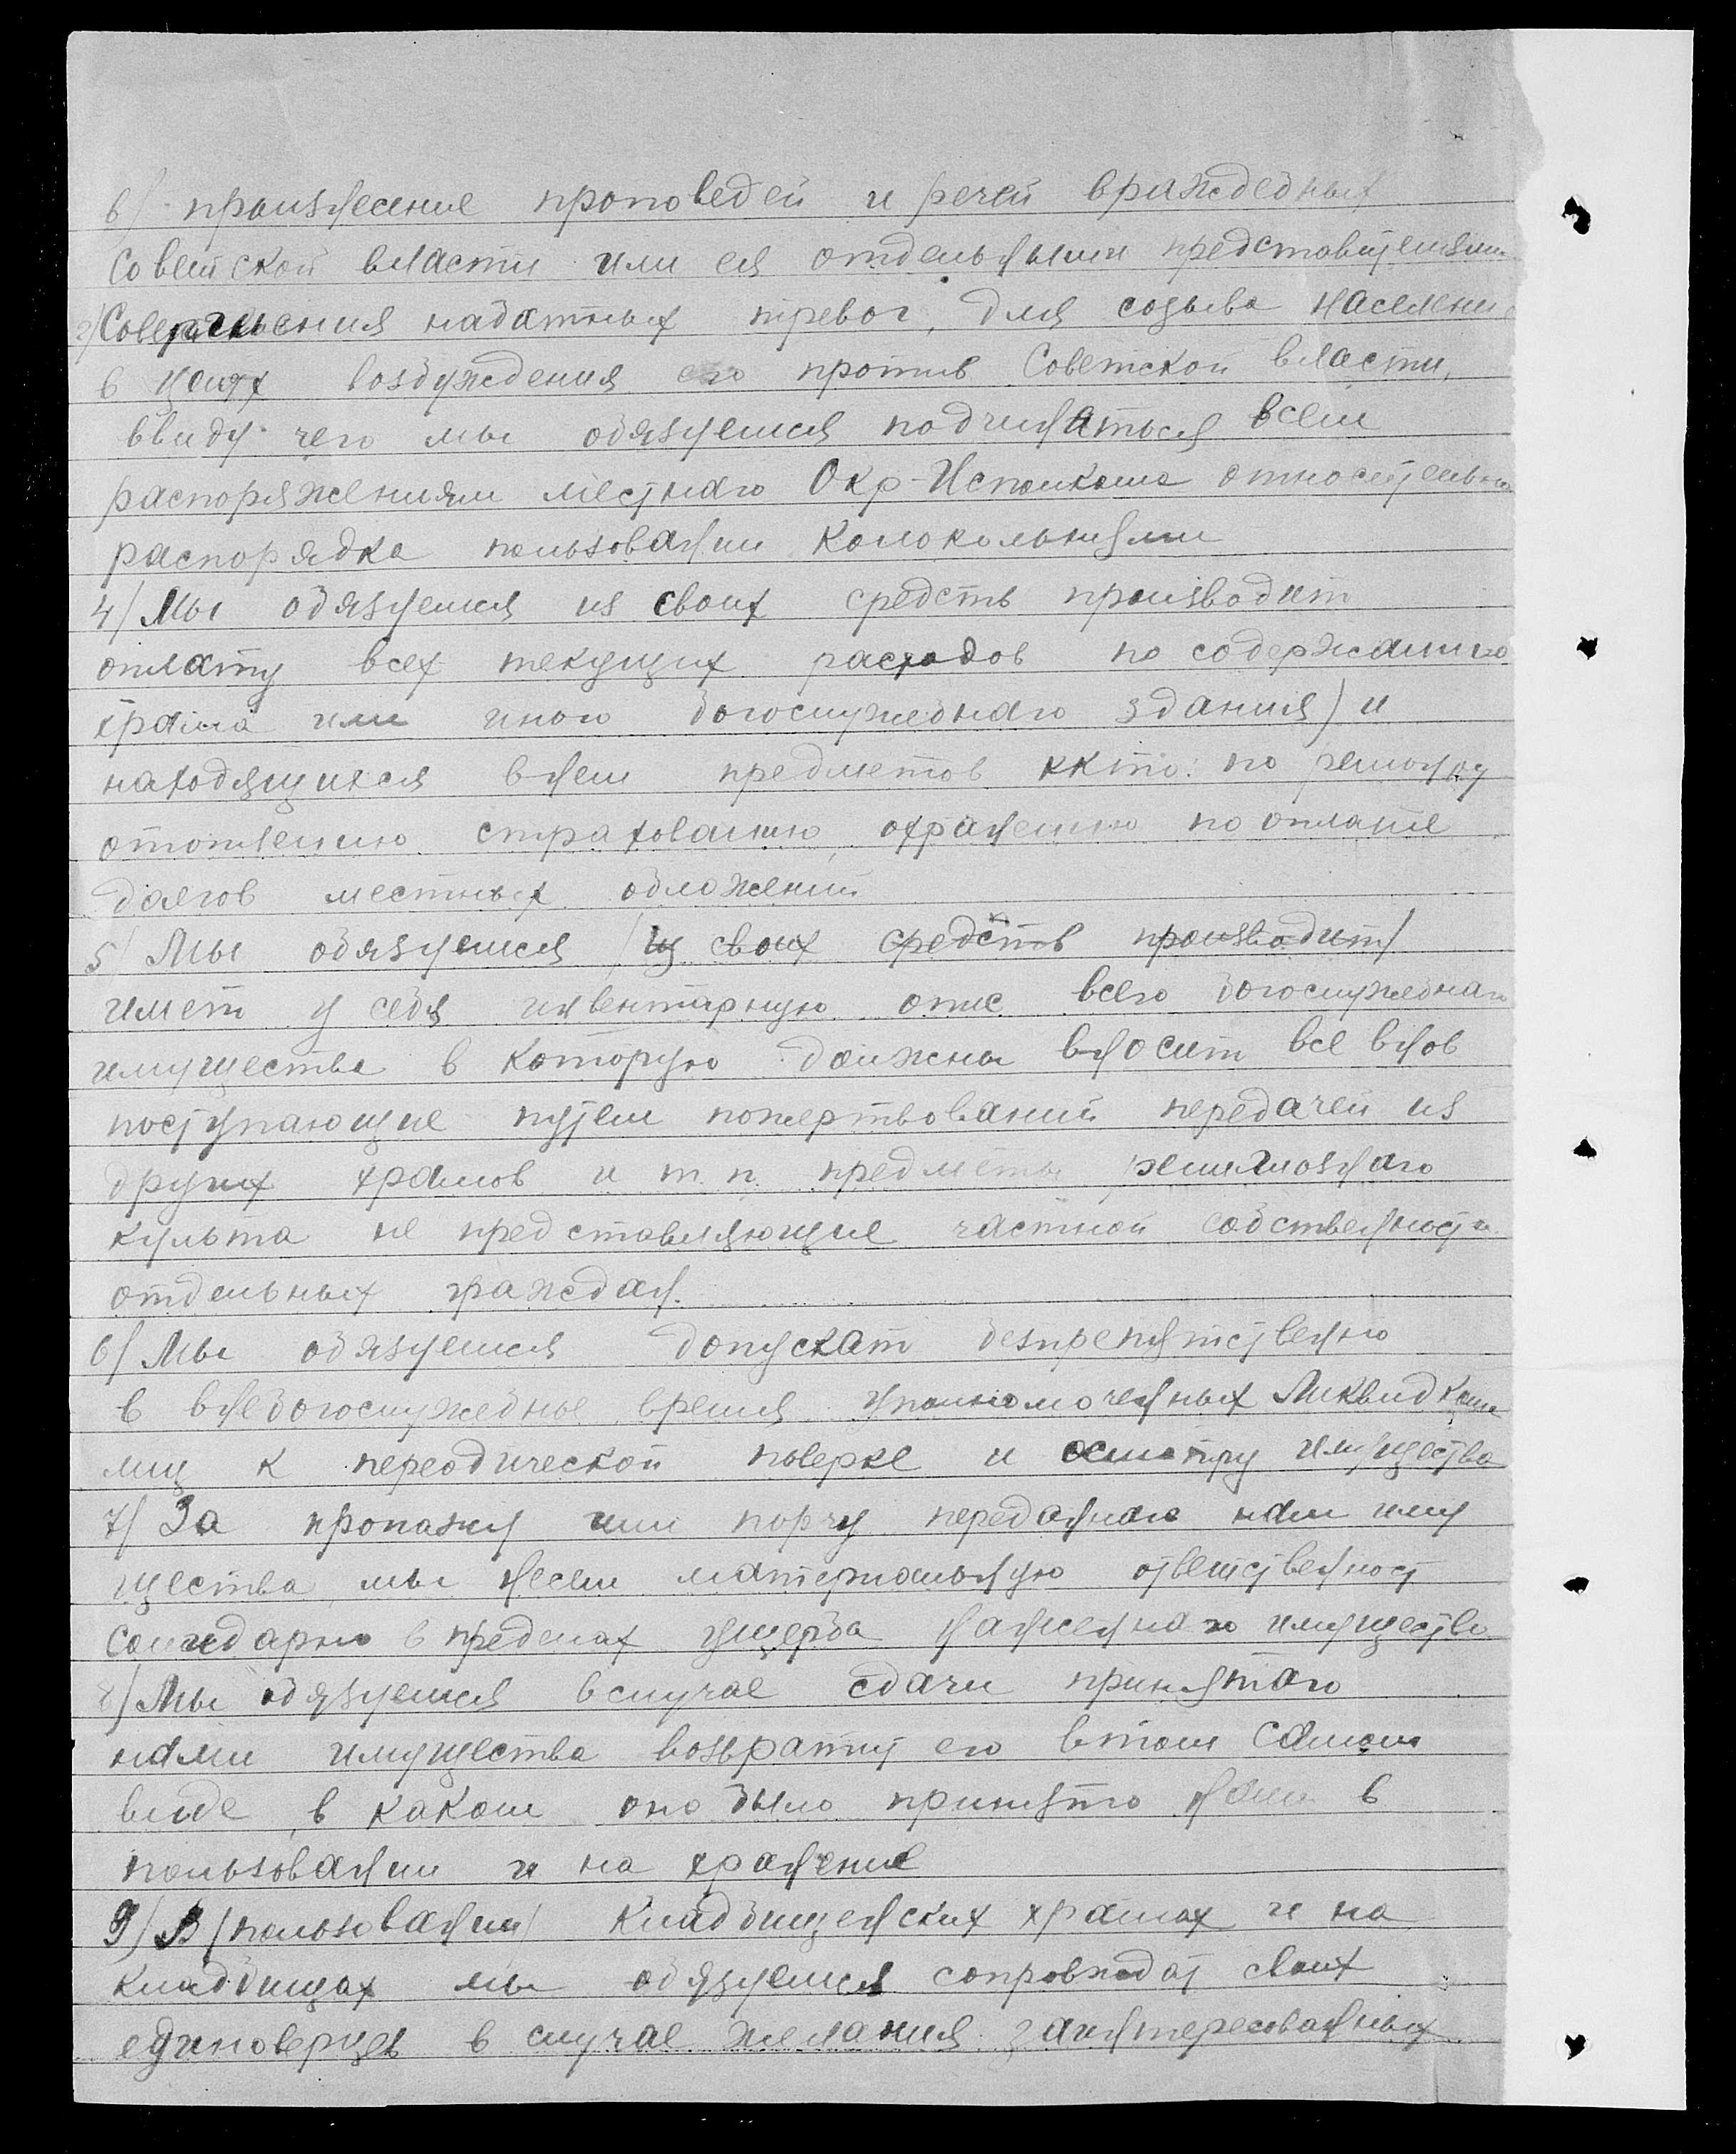 в/ произнесение проповедей и речей враждебных
Советской власти или ея отдельными представителями
г/ Совершения набатных тревог, для созыва населени
в целях возбуждения его против Советской власти,
ввиду чего мы обязуемся подчиняться всем
распоряжениям местнаго Окр-Исполкома относительно
распорядка пользовании колокольнями
4/ Мы обязуемся из своих средств производит
оплату всех текущих расходов по содержанию
храма или иного богослужебнаго здания) и
находящихся в нем предметов ккто: по ремонту
отоплению страхованию, охранению по оплате
долгов местных обложений
5/ Мы обязуемся /из своих средств производит/
имет у себя инвентарную опис всего богослужебнаго
имущества в которую должны вносит все внов
поступающие путем пожертвований передачей из
других храмов и т. п. предметы религиознаго
культа не представляющие частной собственности
отдельных граждан.
6/ Мы обязуемся допускат безпрепятственно
в внебогослужебное время уполномоченных Ликвидкома
лиц к переодической поверке и осмотру имущества
7/ За пропажу или порчу переданаго нам иму
щества мы несем материальную ответственност
солидарно в пределах ущерба нанженнаго имуществу
8/ Мы обязуемся в случае сдачи принятаго
нами имущества возвратит его в том самом
виде, в каком оно было принято нами в
пользовании и на хранение
9/ В /пользовании/ кладбищенских храмах и на
кладбищах мы обязуемся сопровождат своих
единоверцев в случае желания заинтересованных